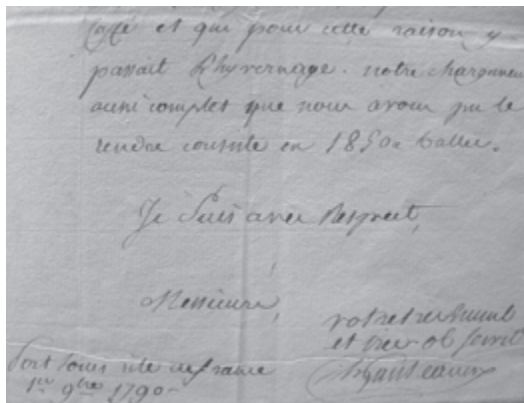 Café et qui pour cette raison y
passait l'hyvernage. notre chargement
aussi complet que nous avons pu le
rendre consiste en 1850 balles.
Je suis avec Respect,
Messieurs,
votre tres humb
et tres ob servit
Port Louis isle de france
1er 9bre 1790